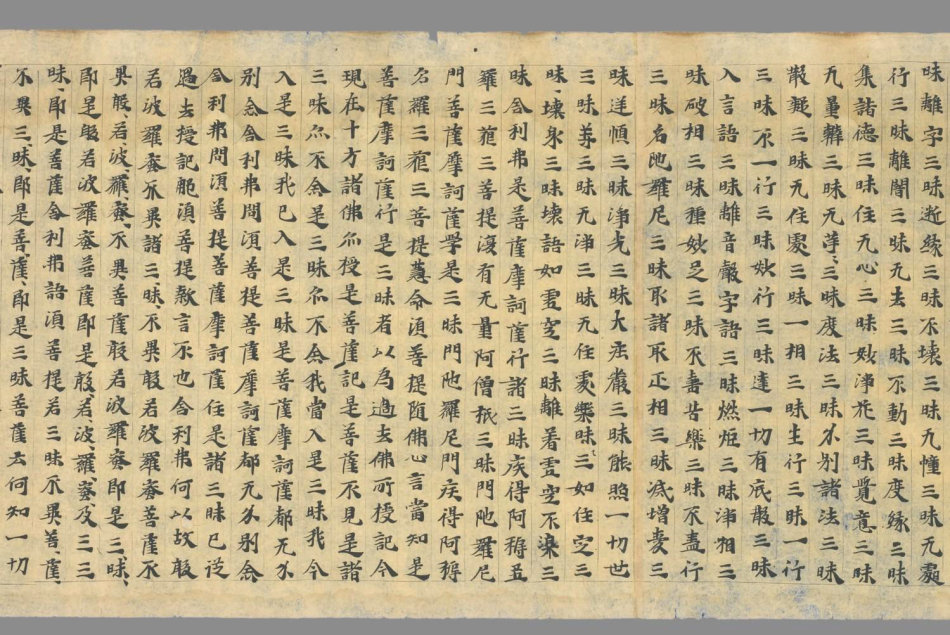 昧離字三昧斷緣三昧不壞三昧无種三昧无處
行三昧離闇三昧无去三昧不動三昧度緣三昧
集諸德三昧住无心三昧妙淨花三昧覺意三昧
无量辯三昧无等三昧度法三昧分别諸法三昧
散疑三昧无住處三昧一相三昧生行三昧一行
三昧不一行三昧妙行三昧達一切有底散三昧
入言語三昧離音聲字語三昧燃炬三昧淨相三
昧破相三昧種妙足三昧不憙苦樂三昧不盡行
三昧名陁羅尼三昧取諸耶正相三昧滅增愛三
昧逆順三昧淨光三昧大庄嚴三昧能照一切世
三昧等三昧无諍三昧无住處樂昧三如住定三
昧壞身三昧壞語如虛空三昧離著虛空不染三
昧舍利弗是菩薩摩訶薩行諸三昧疾得阿耨五
羅三藐三菩提復有无量阿僧祇三昧門陁羅尼
門菩薩摩訶薩學是三昧門陁羅尼門疾得阿耨
多羅三藐三菩提慧命須菩提随佛心言當知是
菩薩摩訶薩行是三昧者以為過去佛所授記今
現在十方諸佛亦授是菩薩記是菩薩不見是諸
三昧亦不念是三昧亦不念我當入是三昧我今
入是三昧我已入是三昧是菩薩摩訶薩都无分
别念舍利弗問須菩提菩薩摩訶薩都无分别念
舍利弗問須菩提菩薩摩訶薩住是諸三昧已從
過去授記耶須菩提報言不也舍利弗何以故般
若波羅蜜不異諸三昧不異般若波羅蜜菩薩不
異般若波羅蜜不異菩薩般若波羅蜜即是三昧
即是般若波羅蜜菩薩即是般若波羅蜜及三三
昧即是菩薩舍利弗語須菩提若三昧不異菩薩
不異三昧即是菩薩即是三昧菩薩云何知一切